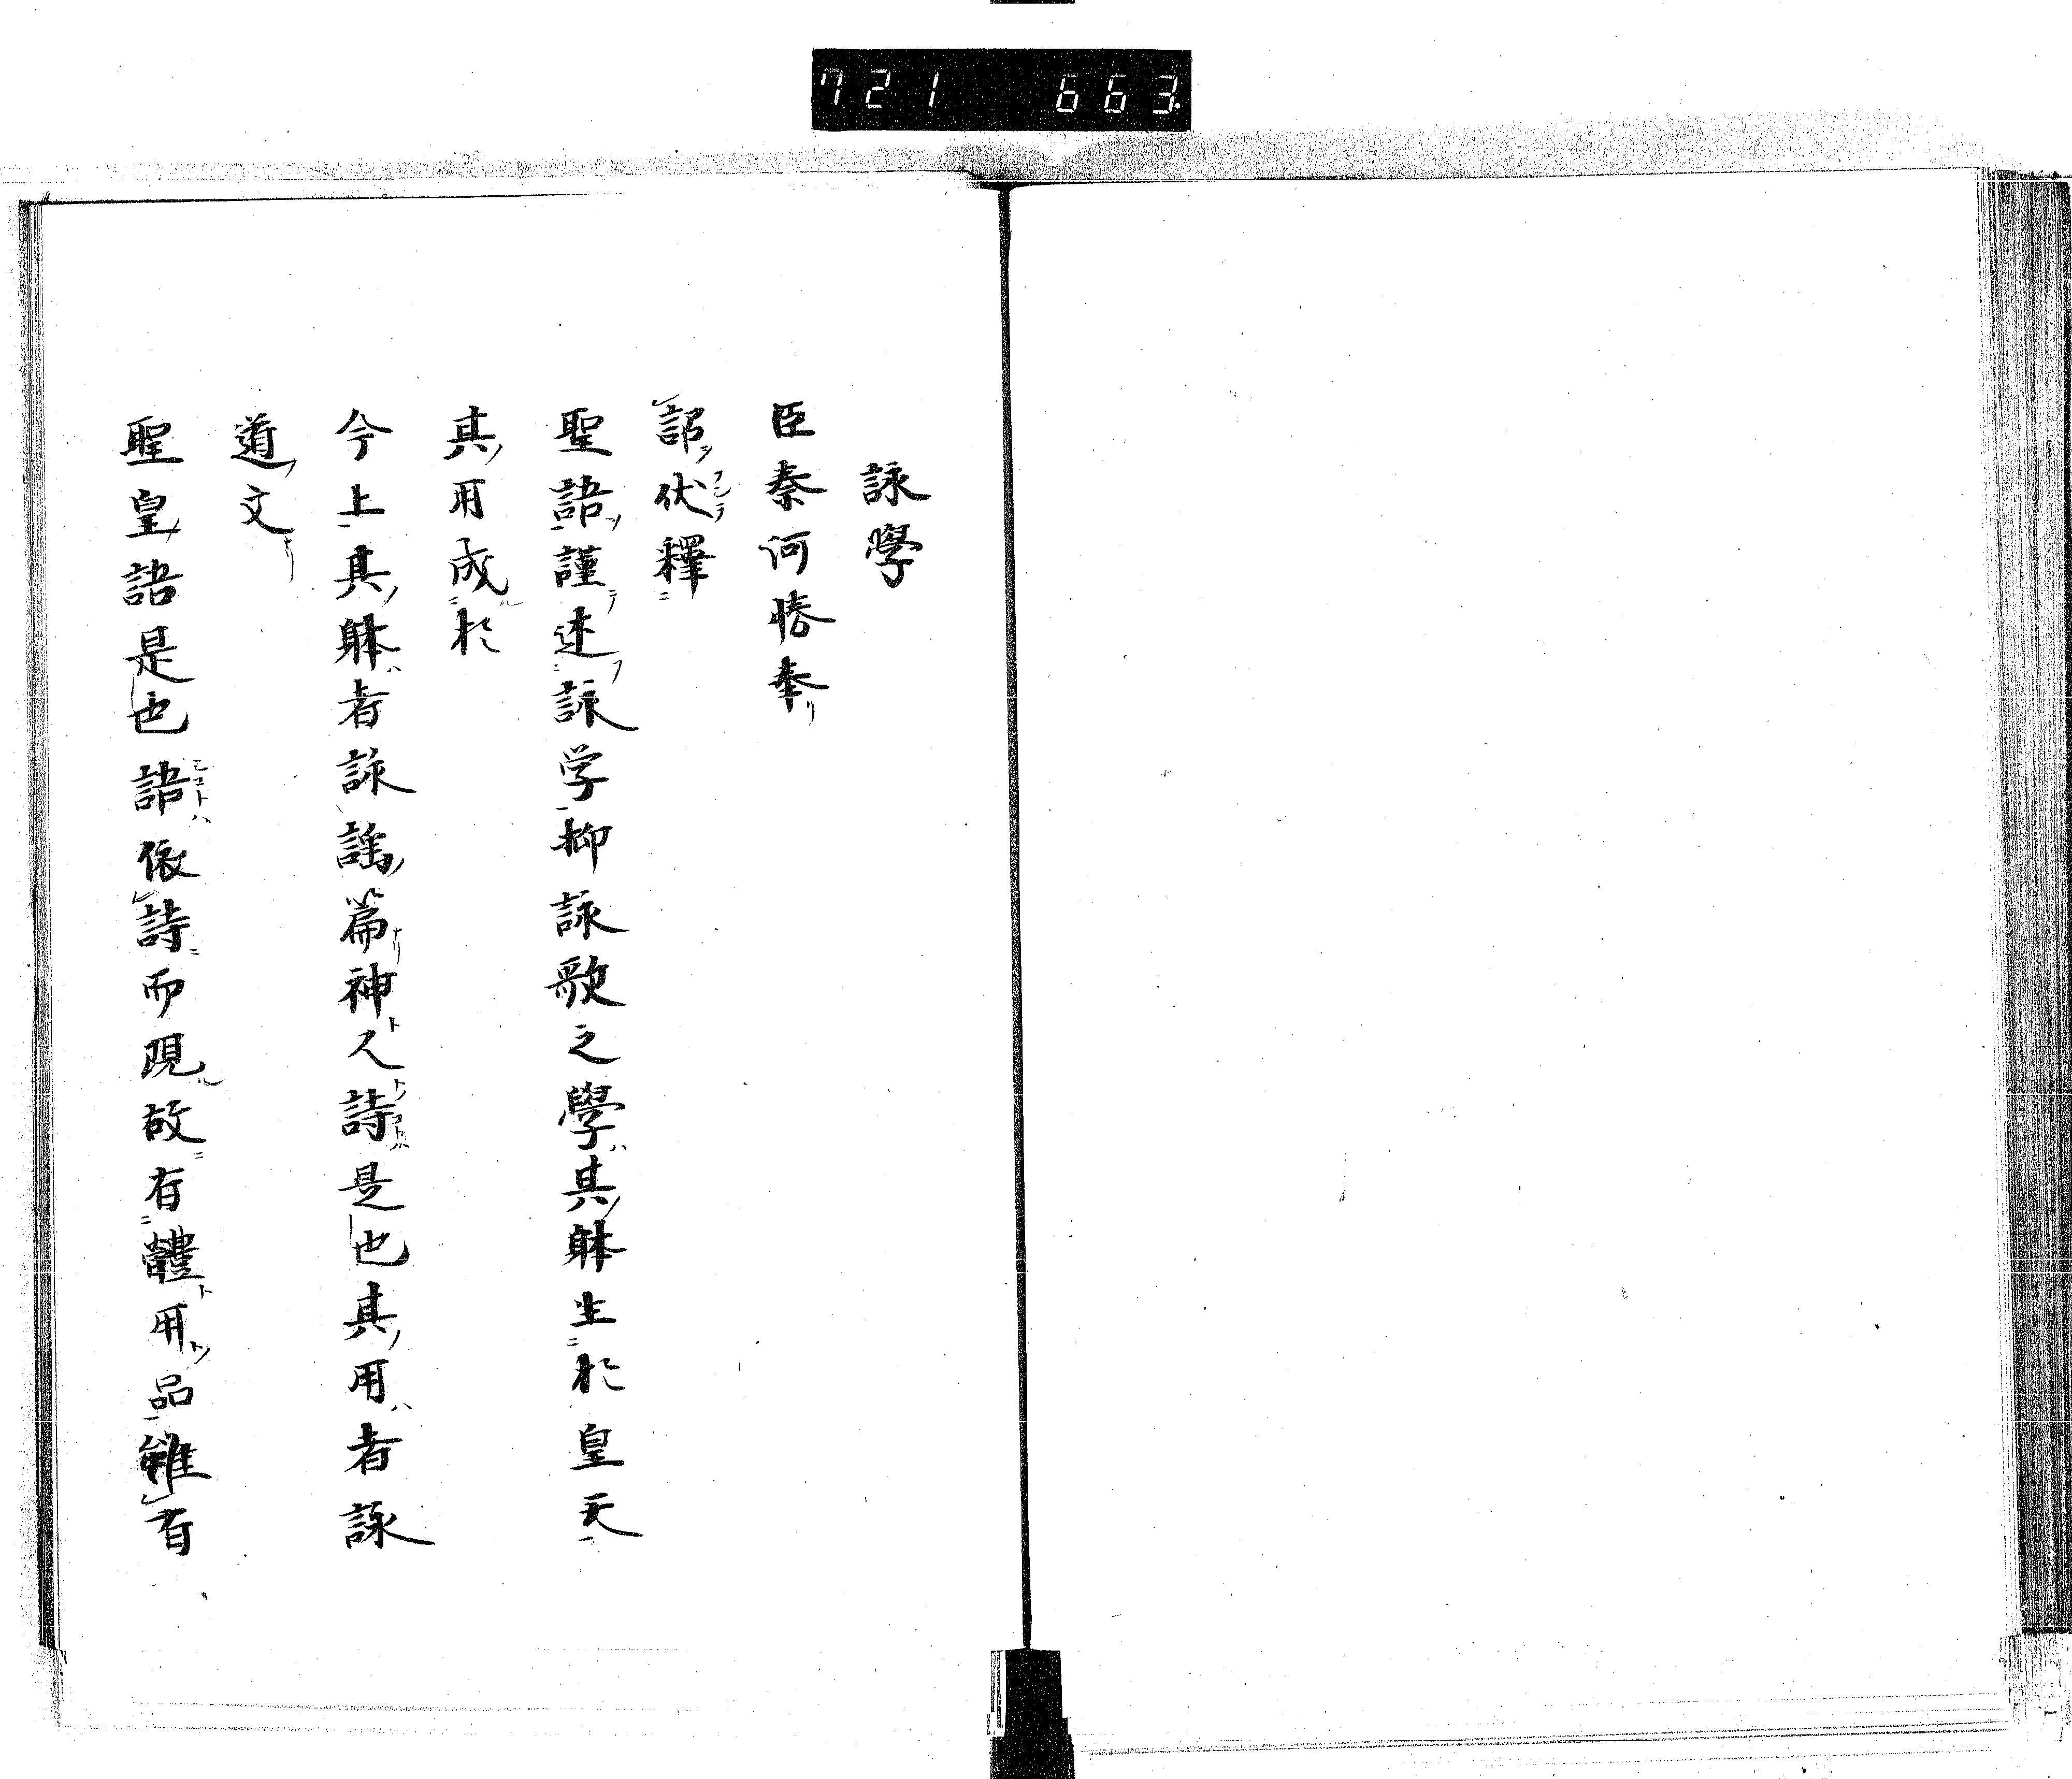 721 663
詠學
臣秦河勝奉
詔伏釋
聖語謹述詠学抑詠歌之學其躰生於皇天
其用成於
今上其躰者詠謡篇神人詩是也其用者詠
道文
聖皇語是也語依詩而現故有體用品雖有